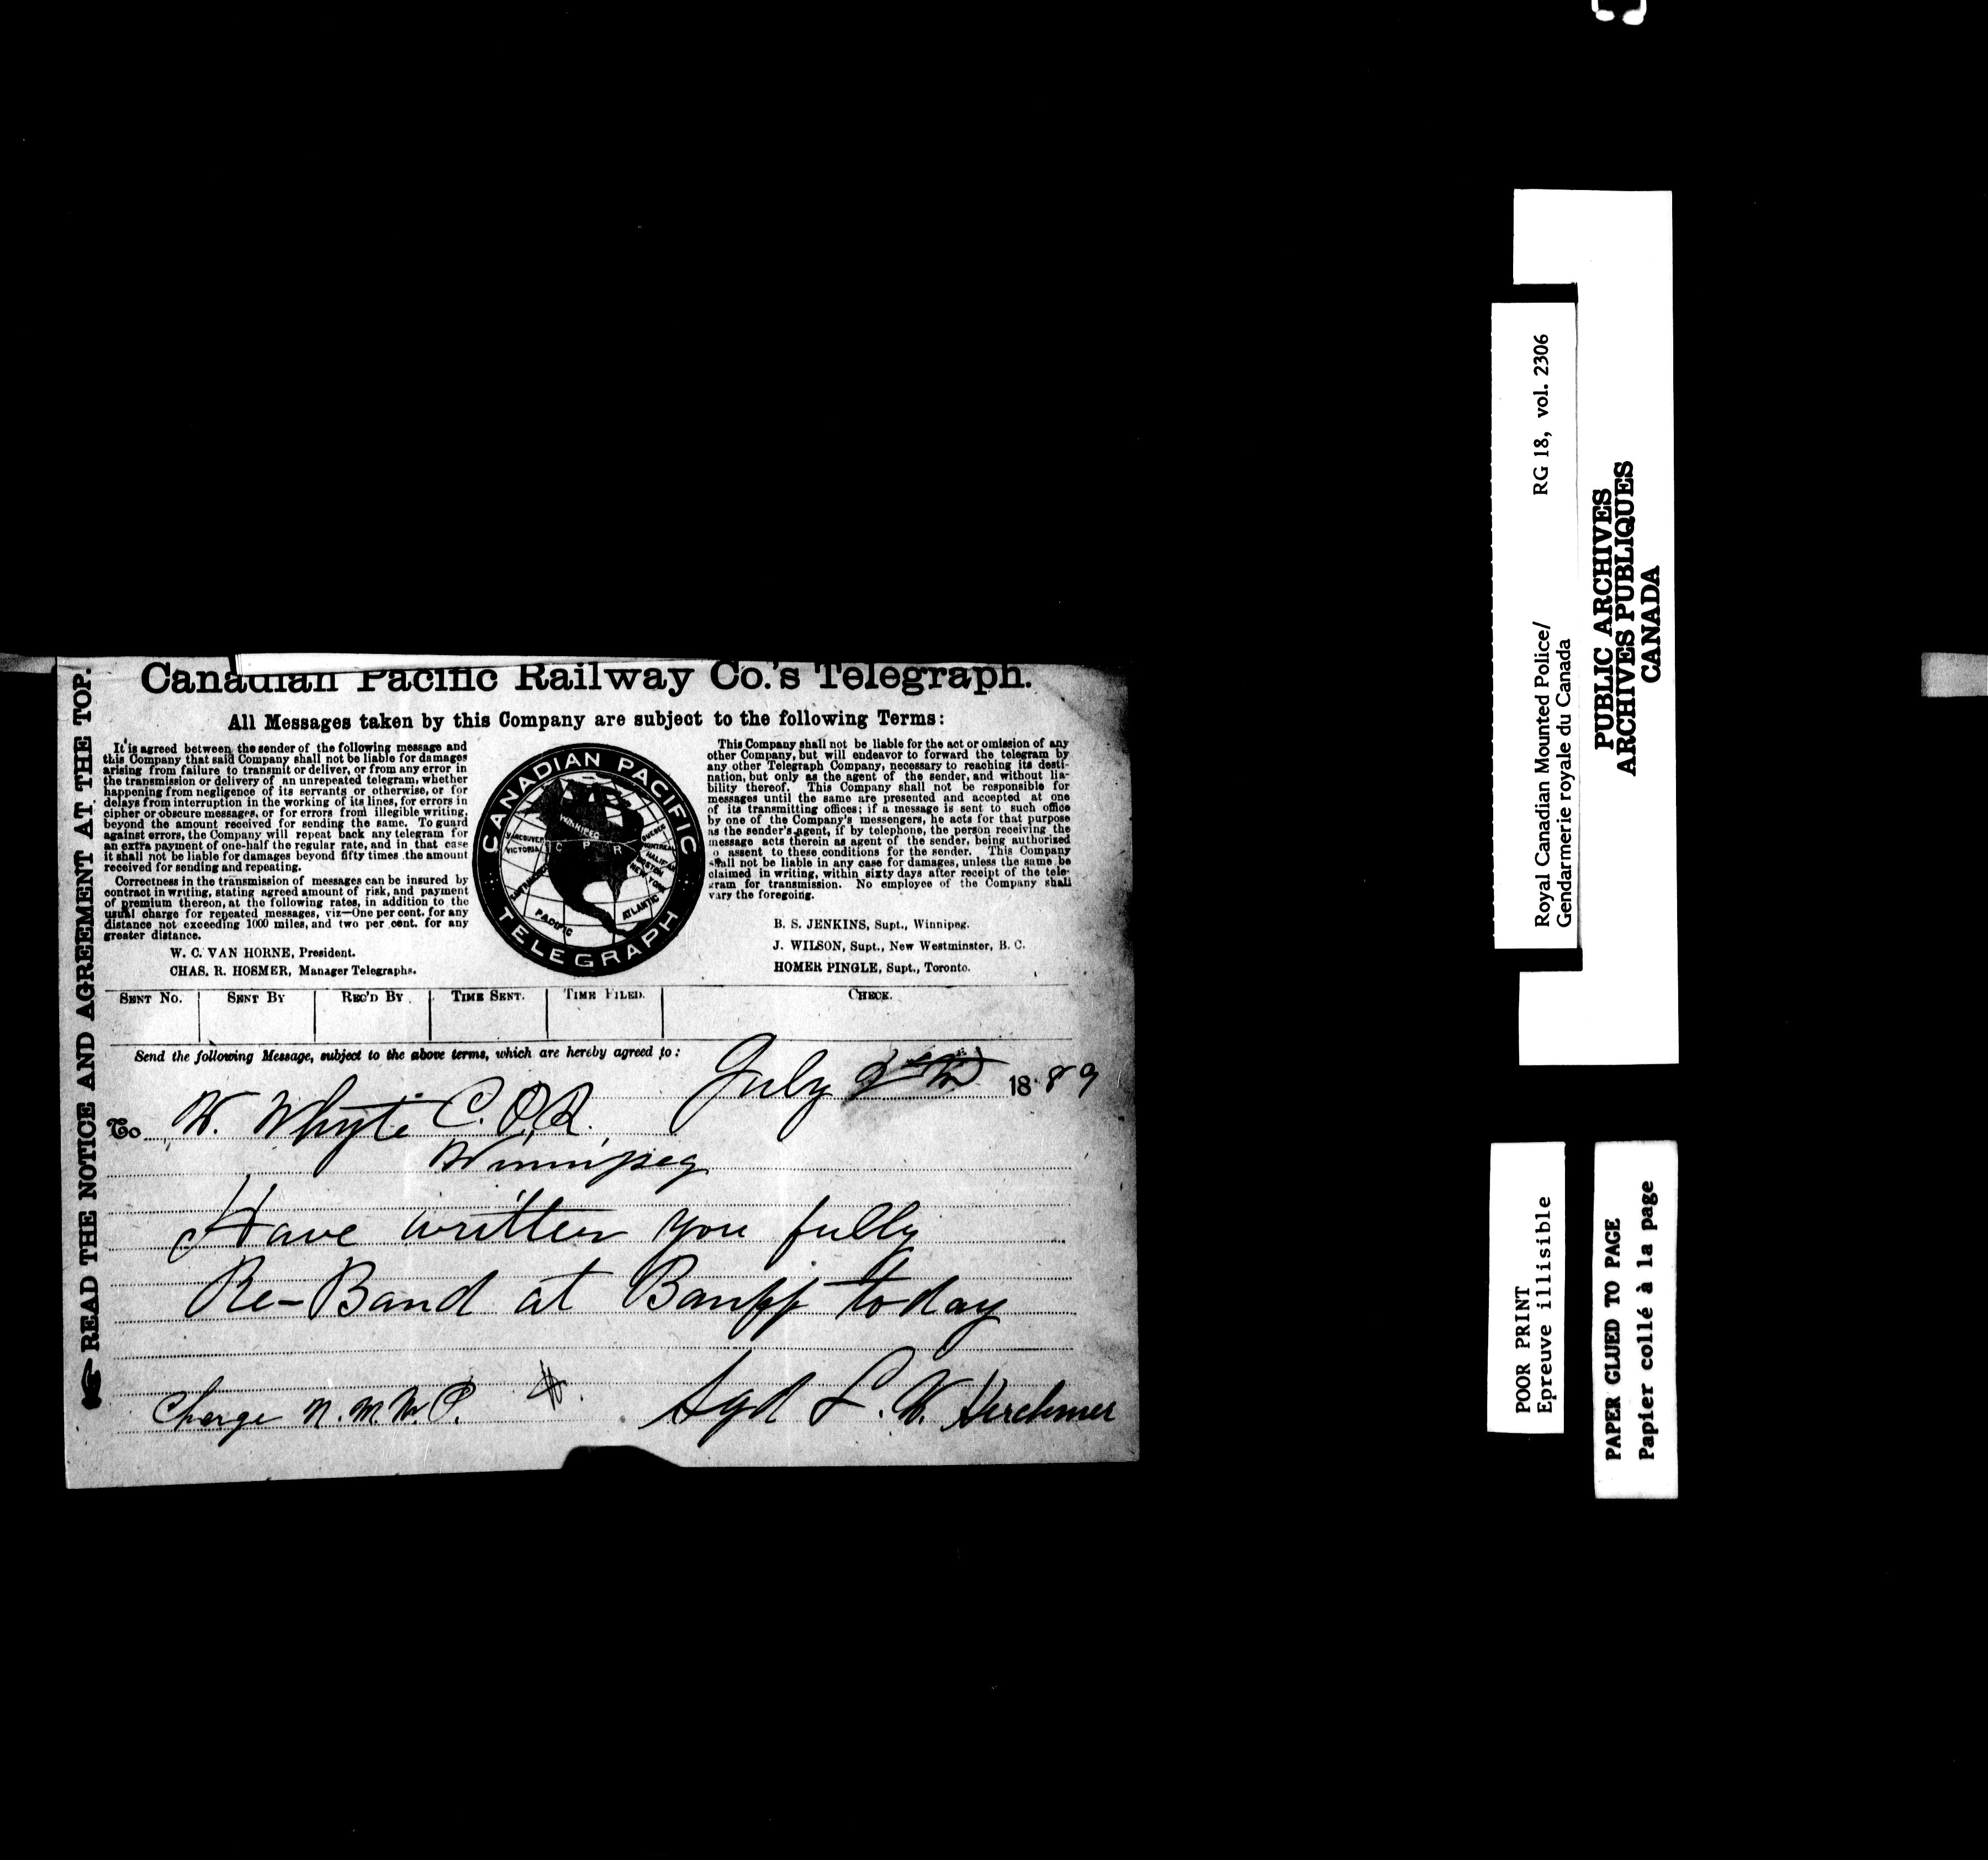 Canadian Pacific Railway Co.'s Telegraph.
All Messages taken by this Company are subject to the following Terms:
It is agreed between the sender of the following message and
this Company that said Company shall not be liable for damages
arising from failure to transmit or deliver, or from any error in
the transmission or delivery of an unrepeated telegram, whether
happening from negligence of its servants or otherwise, or for
delays from interruption in the working of its lines, for errors in
cipher or obscure messages, or for errors from illegible writing,
beyond the amount received for sending the same. To guard
against errors, the Company will repeat back any telegram for
an extra payment of one-half the regular rate, and in that case
it shall not be liable for damages beyond fifty times the amount
received for sending and repeating.
Correctness in the transmission of messages can be insured by
contract in writing, stating agreed amount of risk, and payment
of premium thereon, at the following rates, in addition to the
usual charge for repeated messages, viz—One per cent. for any
distance not exceeding 1000 miles, and two per cent. for any
greater distance.
W. C. VAN HORNE, President.
CHAS. R. HOSMER, Manager Telegraphs.
CANADIAN PACIFIC
WINNIPEG
VANCOUVER
VICTORIA
C P R
QUEBEC
MONTREAL
HALIFAX
BOSTON
NEW YORK
PACIFIC
ATLANTIC
TELEGRAPH
This Company shall not be liable for the act or omission of any
other Company, but will endeavor to forward the telegram by
any other Telegraph Company, necessary to reaching its desti-
nation, but only as the agent of the sender, and without lia-
bility thereof. This Company shall not be responsible for
messages until the same are presented and accepted at one
of its transmitting offices; if a message is sent to such office
by one of the Company's messengers, he acts for that purpose
as the sender's agent, if by telephone, the person receiving the
message acts therein as agent of the sender, being authorised
o assent to these conditions for the sender. This Company
shall not be liable in any case for damages, unless the same be
claimed in writing, within sixty days after receipt of the tele-
gram for transmission. No employee of the Company shall
vary the foregoing.
B. S. JENKINS, Supt., Winnipeg.
J. WILSON, Supt., New Westminster, B. C.
HOMER PINGLE, Supt., Toronto.
SENT NO. SENT BY REC'D BY TIME SENT. TIME FILED. CHECK.
Send the following Message, subject to the above terms, which are hereby agreed to:
July 1889
To W. Whyte C.P.R.
Winnipeg
Have written you fully
Re-Band at Banff today
Sgd L. W. Herchmer
Charge N.W.M.P.
READ THE NOTICE AND AGREEMENT AT THE TOP.
Royal Canadian Mounted Police/ RG 18, vol. 2306
Gendarmerie royale du Canada
PUBLIC ARCHIVES
ARCHIVES PUBLIQUES
CANADA
POOR PRINT
Epreuve illisible
PAPER GLUED TO PAGE
Papier collé à la page